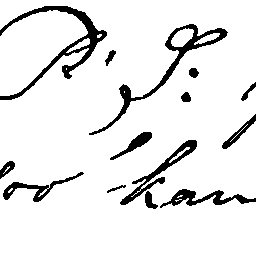 P. S:
oo kan